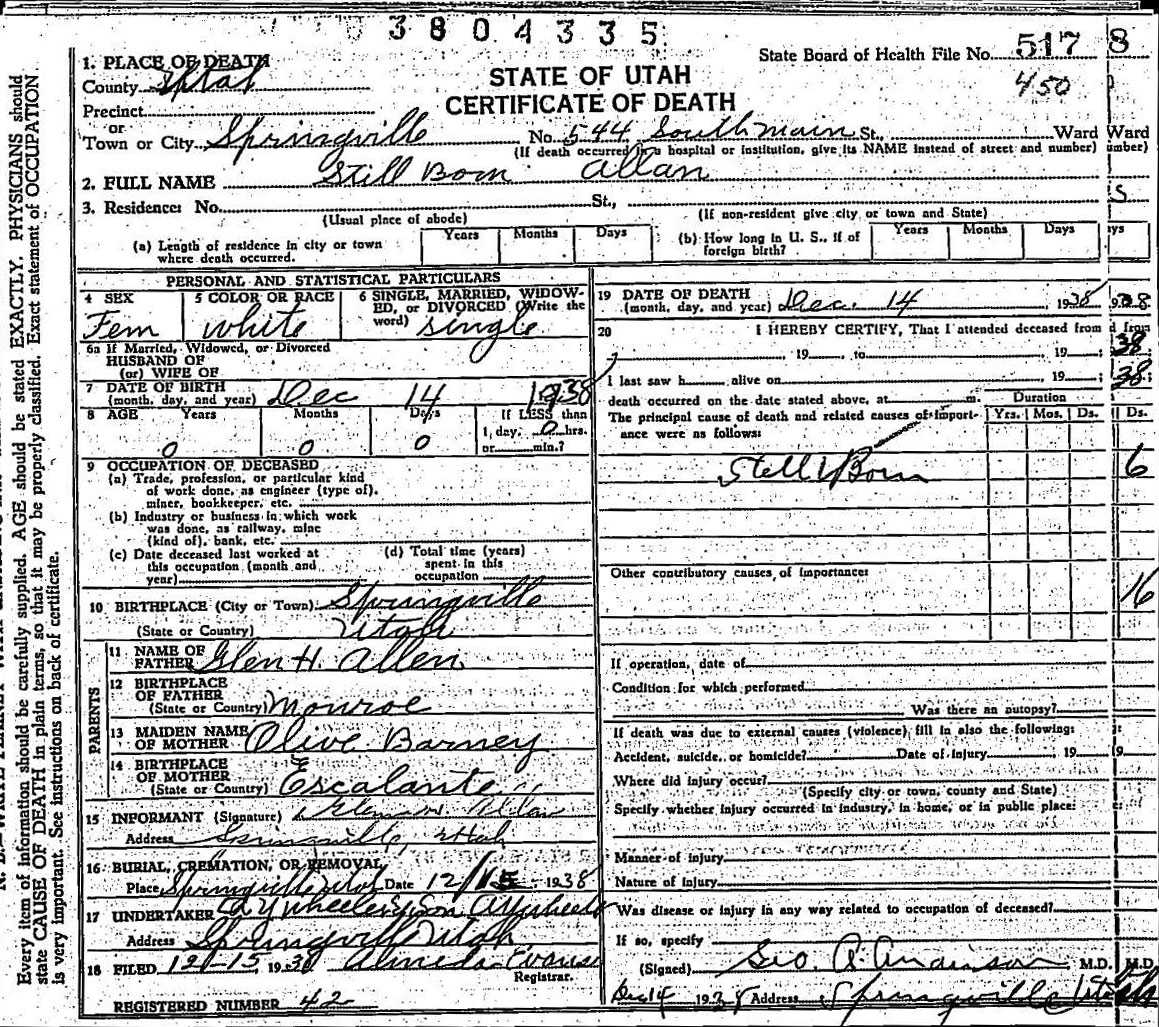 3804335
State Board of Health File No. 517 8
450
STATE OF UTAH
CERTIFICATE OF DEATH
1. PLACE OF DEATH
County Utah
Precinct
or
Town or City Springville No. 544 South main St., Ward Ward
(If death occurred in a hospital or institution, give its NAME instead of street and number) umber)
2. FULL NAME Still Born Allan
3. Residence: No. St., S
(Usual place of abode) (If non-resident give city or town and State)
(a) Length of residence in city or town where death occurred. Years Months Days (b) How long in U. S., if of foreign birth? Years Months Days ays
PERSONAL AND STATISTICAL PARTICULARS
4 SEX Fem
5 COLOR OR RACE white
6 SINGLE, MARRIED, WIDOWED, OR DIVORCED (Write the word) single
6a If Married, Widowed, or Divorced
HUSBAND OF
(or) WIFE OF
7 DATE OF BIRTH
(month, day, and year) Dec 14 1938
8 AGE Years Months Days If LESS than
0 0 0 1 day, 0 hrs.
or min.?
9 OCCUPATION OF DECEASED
(a) Trade, profession, or particular kind
of work done, as engineer (type of),
miner, bookkeeper, etc.
(b) Industry or business in which work
was done, as railway, mine
(kind of), bank, etc.
(c) Date deceased last worked at
this occupation (month and
year)
(d) Total time (years)
spent in this
occupation
10 BIRTHPLACE (City or Town) Springville
(State or Country) Utah
PARENTS
11 NAME OF
FATHER Glen H. Allen
12 BIRTHPLACE
OF FATHER
(State or Country) Monroe
13 MAIDEN NAME
OF MOTHER Olive Barney
14 BIRTHPLACE
OF MOTHER
(State or Country) Escalante
15 INFORMANT (Signature) Allan
Address Springville, Utah
16 BURIAL, CREMATION, OR REMOVAL
Place Springville Utah Date 12/15 1938
17 UNDERTAKER A Y Wheeler & Son A Y Wheeler
Address Springville Utah
18 FILED 12-15, 1938 Almeda Evans
Registrar.
REGISTERED NUMBER 42
19 DATE OF DEATH
(month, day, and year) Dec. 14 1938
20 I HEREBY CERTIFY, That I attended deceased from d from
, 19 to 19 ; 38
I last saw h alive on 19 ; 38
death occurred on the date stated above, at m. Duration
The principal cause of death and related causes of importance were as follows: Yrs. Mos. Ds. Ds.
Still Born 6
Other contributory causes of importance:
16
If operation, date of
Condition for which performed
Was there an autopsy?
If death was due to external causes (violence) fill in also the following:
Accident, suicide, or homicide? Date of injury 19
Where did injury occur?
(Specify city or town, county and State)
Specify whether injury occurred in industry, in home, or in public place:
Manner of injury
Nature of injury
Was disease or injury in any way related to occupation of deceased?
If so, specify
(Signed) Geo. A. Anderson M.D. M.D.
Dec 14 1938 Address Springville Utah
Every item of information should be carefully supplied. AGE should be stated EXACTLY. PHYSICIANS should
state CAUSE OF DEATH in plain terms, so that it may be properly classified. Exact statement of OCCUPATION
is very important. See instructions on back of certificate.